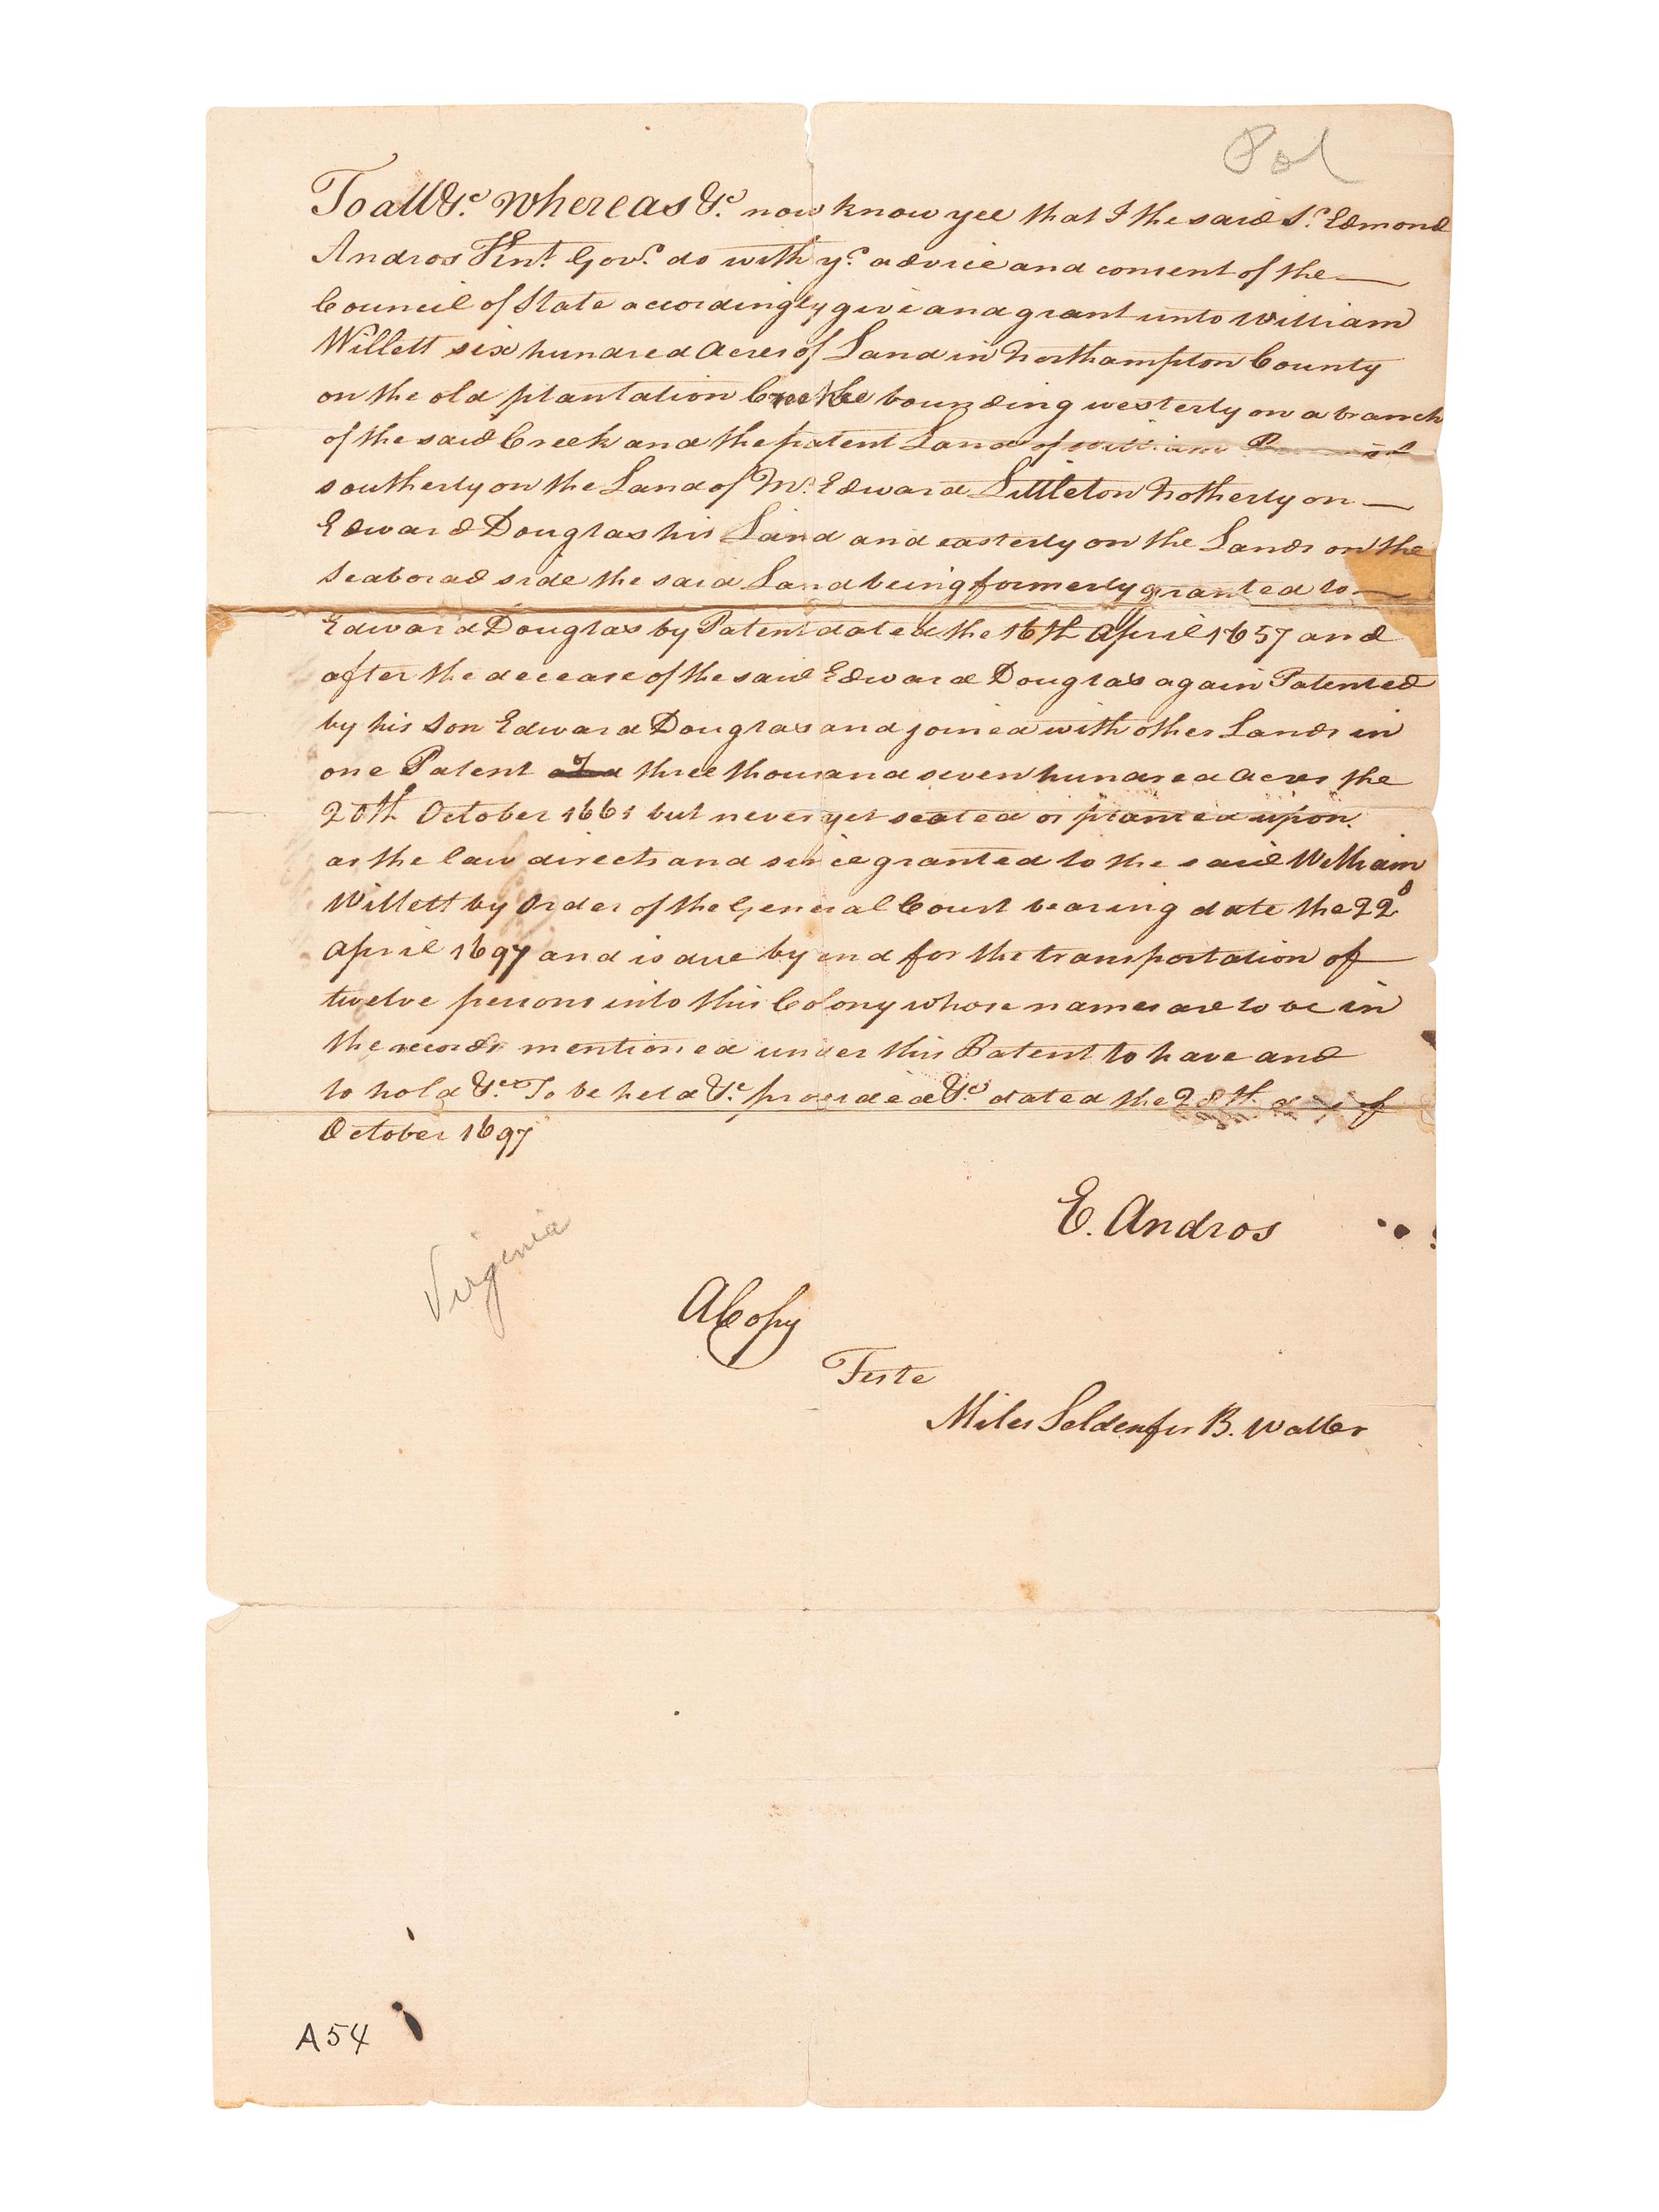 Pol
To all &c. Whereas &c. now know yee that I the said Sr. Edmond
Andros Knt. Govr. do with ye. advice and consent of the
Council of State accordingly give and grant unto William
Willett six hundred Acres of Land in Northampton County
on the old plantation Creeke bounding westerly on a branch
of the said Creek and the patent Land of William
southerly on the Land of Mr. Edward Littleton Notherly on
Edward Douglas his Land and easterly on the Lands on the
Seaborad side the said Land being formerly granted to
Edward Douglas by Patent dated the 16th April 1657 and
after the decease of the said Edward Douglas again Patented
by his Son Edward Douglas and joined with other Lands in
one Patent of three thousand seven hundred Acres the
20th October 1661 but never yet seated or planted upon.
as the law directs and since granted to the said William
Willett by Order of the General Court bearing date the 22d
April 1697 and is due by and for the transportation of
twelve persons into this Colony whose names are to be in
the records mentioned under this Patent to have and
to hold &c. To be held &c. provided &c. dated the 28th day of
October 1697
E. Andros
Virginia
A Copy
Teste
Miles Selden for B. Waller
A54